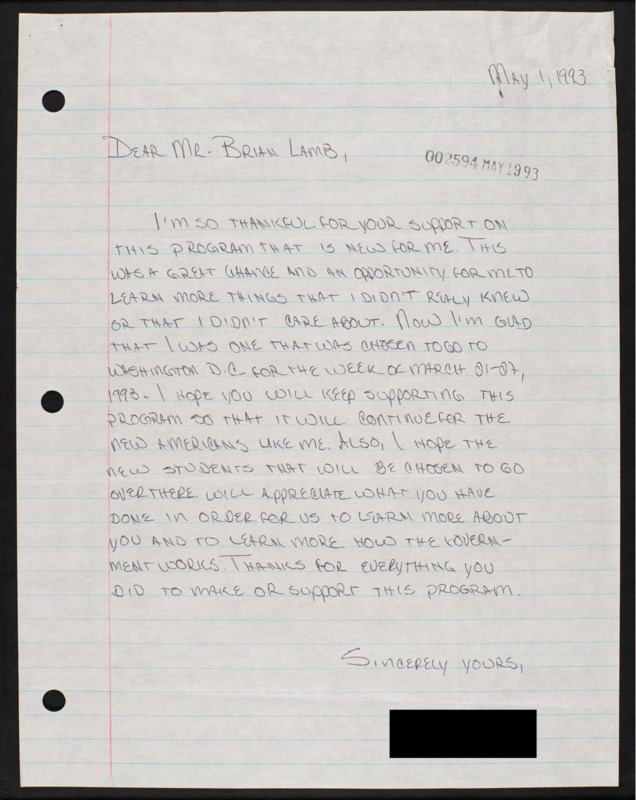 May 1, 1993
Dear Mr. Brian Lamb,
002594 MAY 1993
I'm so thankful for your support on
this program that is new for me. This
was a great change and an opportunity for me to
learn more things that I didn't realy knew
or that I didn't care about. Now I'm glad
that I was one that was chosen to go to
Washington D.C. for the week of March 21-27,
1993. I hope you will keep supporting this
program so that it will continue for the
new Americans like me. Also, I hope the
new students that will be chosen to go
over there will appreciate what you have
done in order for us to learn more about
you and to learn more how the govern-
ment works. Thanks for everything you
did to make or support this program.
Sincerely yours,